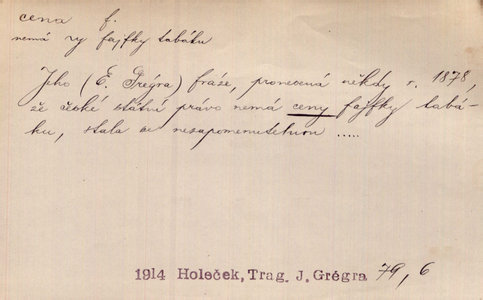 cena f.
nemá ry fajfky tabáku
Jeho (E. Grégra) fráze, pronesená někdy r. 1878,
že české státní právo nemá ceny fajfky tabá-
ku, stala se nezapomenutelnou .....
1914 Holeček, Trag. J. Grégra 79, 6